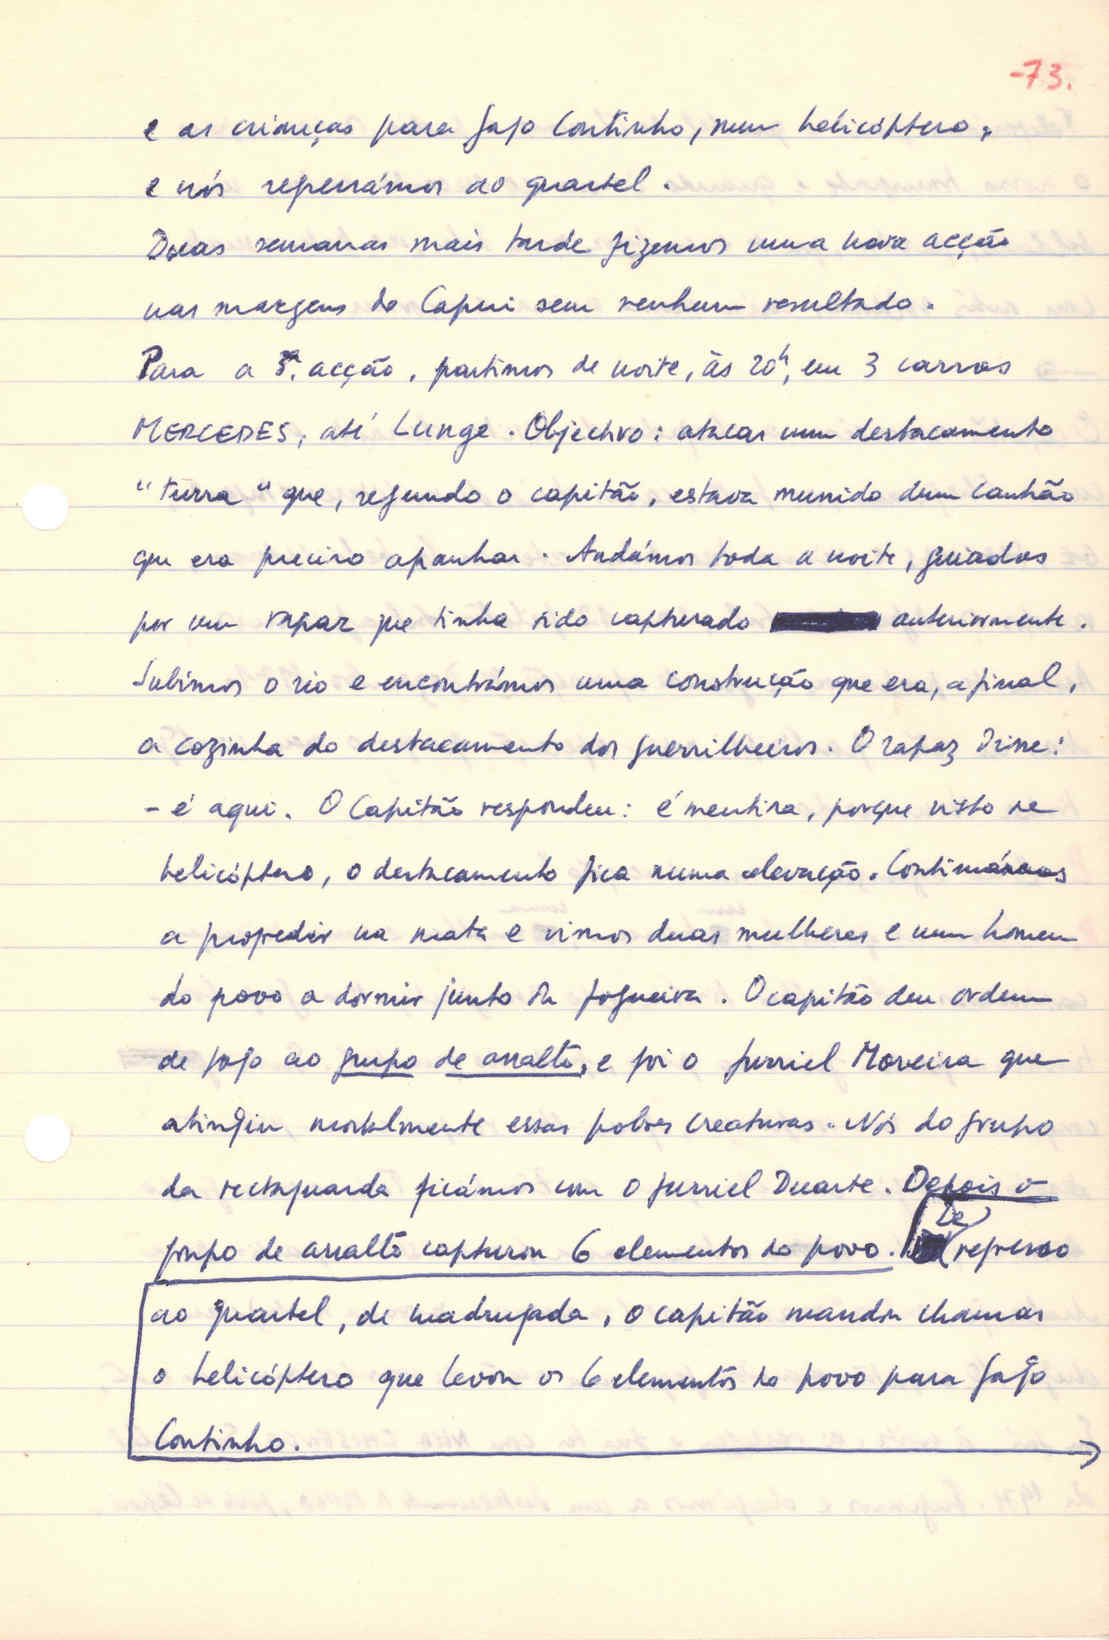 -73.
e as crianças para Gago Coutinho, num helicóptero,
e nós regressámos ao quartel.
Duas semanas mais tarde fizemos uma nova acção
nas margens do Capui sem nenhum resultado.
Para a 3ª. acção, partimos de noite, às 20h, em 3 carros
MERCEDES, até Lunge. Objectivo: atacar um destacamento
"turra" que, segundo o capitão, estava munido dum canhão
que era preciso apanhar. Andámos toda a noite, guiados
por um rapaz que tinha sido capturado anteriormente.
Subimos o rio e encontrámos uma construção que era, afinal,
a cozinha do destacamento dos guerrilheiros. O rapaz disse:
- é aqui. O Capitão respondeu: é mentira, porque visto de
helicóptero, o destacamento fica numa elevação. Continuámos
a progredir na mata e vimos duas mulheres e um homem
do povo a dormir junto da fogueira. O capitão deu ordem
de fogo ao grupo de assalto, e foi o furriel Moreira que
atingiu mortalmente essas pobres creaturas. Nós do grupo
da rectaguarda ficámos com o furriel Duarte. Depois o
grupo de assalto capturou 6 elementos do povo. De regresso
ao quartel, de madrugada, o capitão mandou chamar
o helicóptero que levou os 6 elementos do povo para Gago
Coutinho.